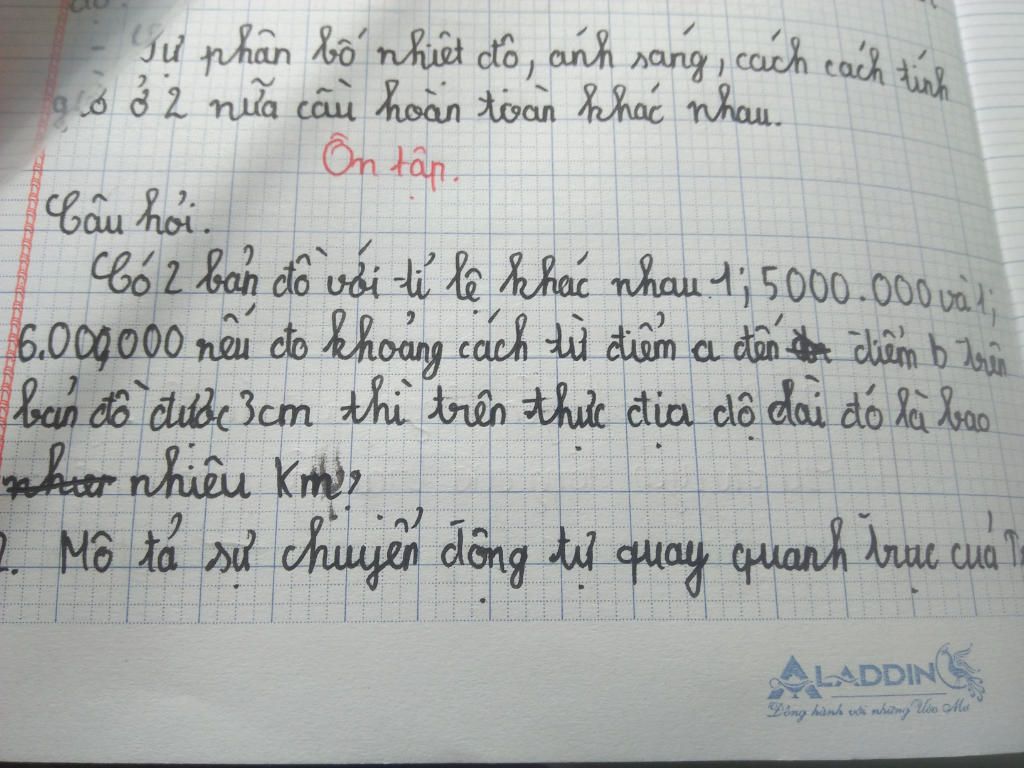 - Sự phân bố nhiệt độ, ánh sáng, cách cách tính
gió ở 2 nữa cầu hoàn toàn khác nhau.
Ôn tập.
Câu hỏi.
Có 2 bản đồ với tỉ lệ khác nhau 1; 5000.000 và 1;
6.000,000 nếu đo khoảng cách từ điểm a đến điểm b trên
bản đồ được 3cm thì trên thực địa độ dài đó là bao
nhiêu Km?
2. Mô tả sự chuyển động tự quay quanh trục của
ALADDIN
Đồng hành với những Ước Mơ